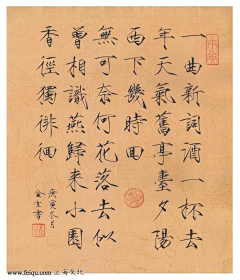 一曲新詞酒一杯去
年天氣舊亭臺夕陽
西下幾時回
無可奈何花落去似
曾相識燕歸來小園
香徑獨徘徊
庚寅冬月
金生書
www.feiqu.com